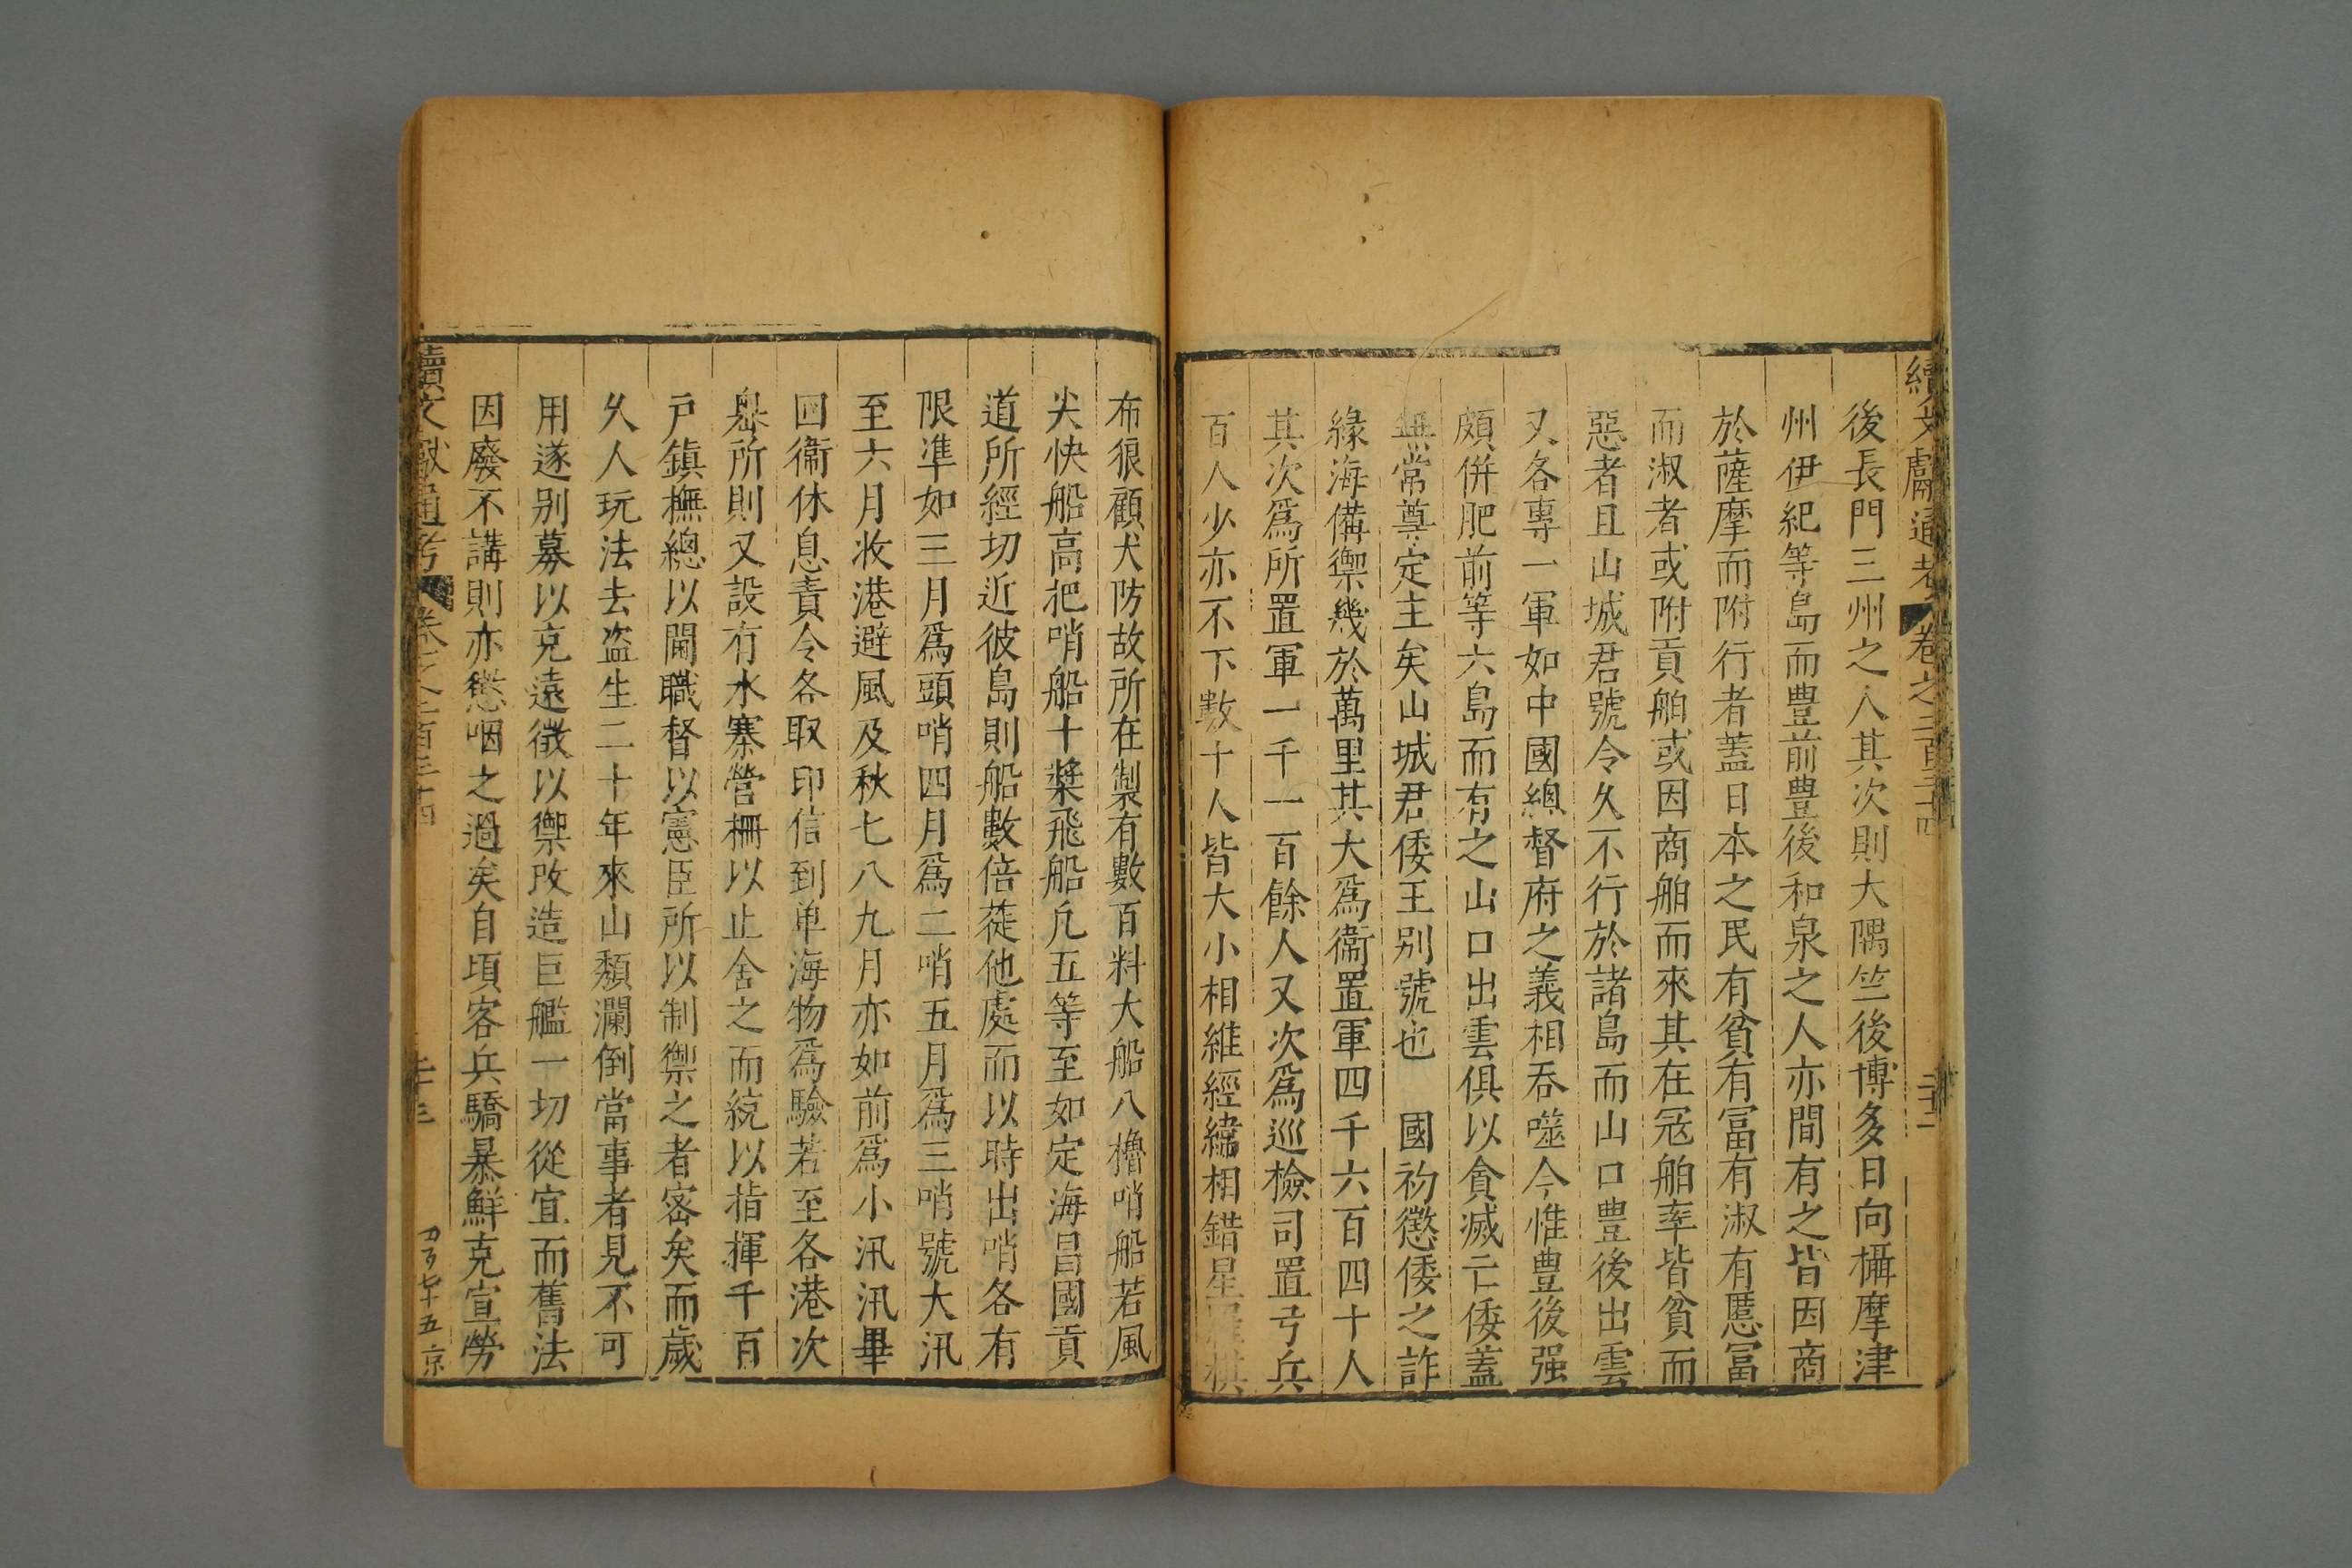 續文獻通考 卷之二百三十四
後長門三州之人其次則大隅竺後博多日向攝摩津
州伊紀等島而豊前豊後和泉之人亦間有之皆因商
於薩摩而附行者蓋日本之民有貧有冨有淑有慝冨
而淑者或附貢舶或因商舶而來其在冦舶率皆貧而
惡者且山城君號令久不行於諸島而山口豊後出雲
又各專一軍如中國總督府之義相吞噬今惟豊後强
頗併肥前等六島而有之山口出雲俱以貪滅亡倭蓋
無常尊定主矣山城君倭王别號也 國初懲倭之詐
緣海備禦幾於萬里其大爲衞置軍四千六百四十人
其次爲所置軍一千一百餘人又次爲巡檢司置弓兵
百人少亦不下數十人皆大小相維經緯相錯星羅棋
布狼顧犬防故所在製有數百料大船八櫓哨船若風
尖快船高把哨船十槳飛船凡五等至如定海昌國貢
道所經切近彼島則船數倍蓰他處而以時出哨各有
限凖如三月爲頭哨四月爲二哨五月爲三哨號大汛
至六月收港避風及秋七八九月亦如前爲小汛汛畢
回衞休息責令各取印信到单海物爲驗若至各港次
𭤰所則又設有水寨營柵以止舍之而統以指揮千百
戶鎮撫總以閫職督以憲臣所以制禦之者宻矣而歲
久人玩法去盗生二十年來山頹瀾倒當事者見不可
用遂别募以克遠徵以禦改造巨艦一切從宜而舊法
因廢不講則亦懲咽之過矣自頃客兵驕暴鮮克宣勞
續文獻通考 卷之二百三十四